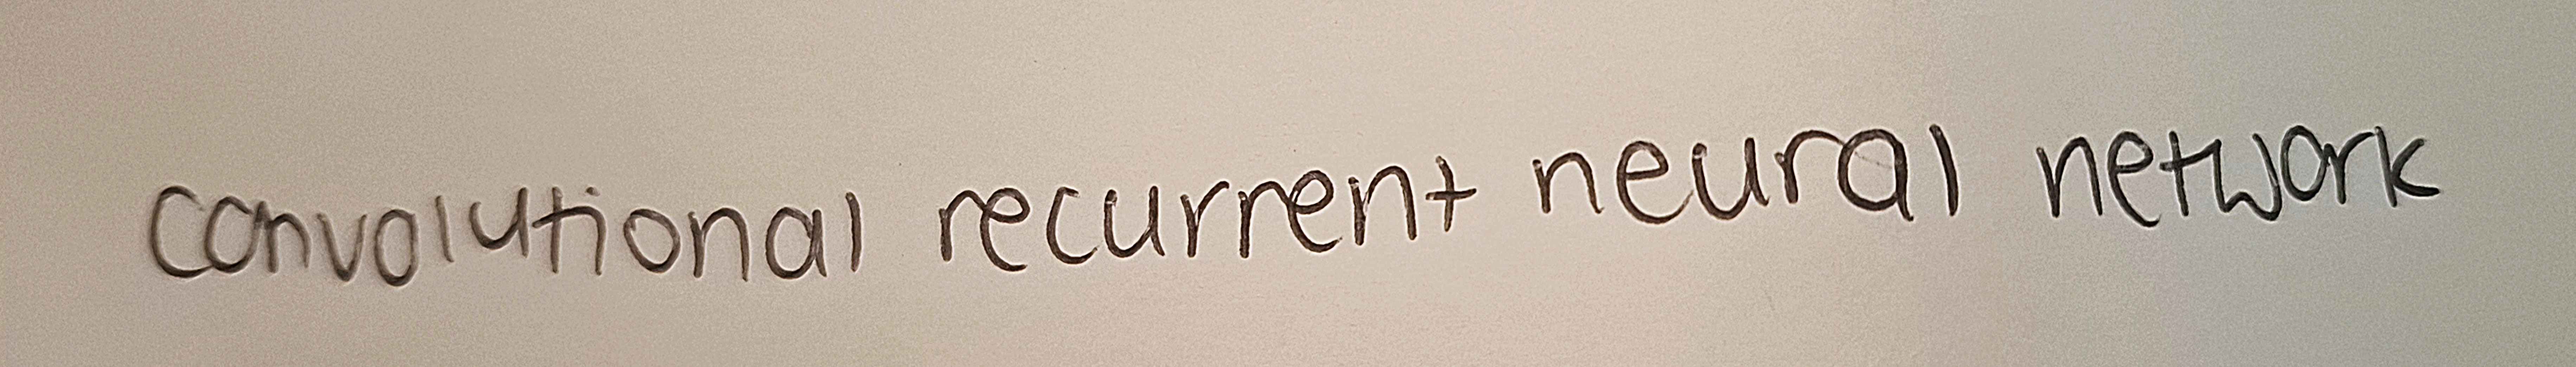 convolutional recurrent neural network